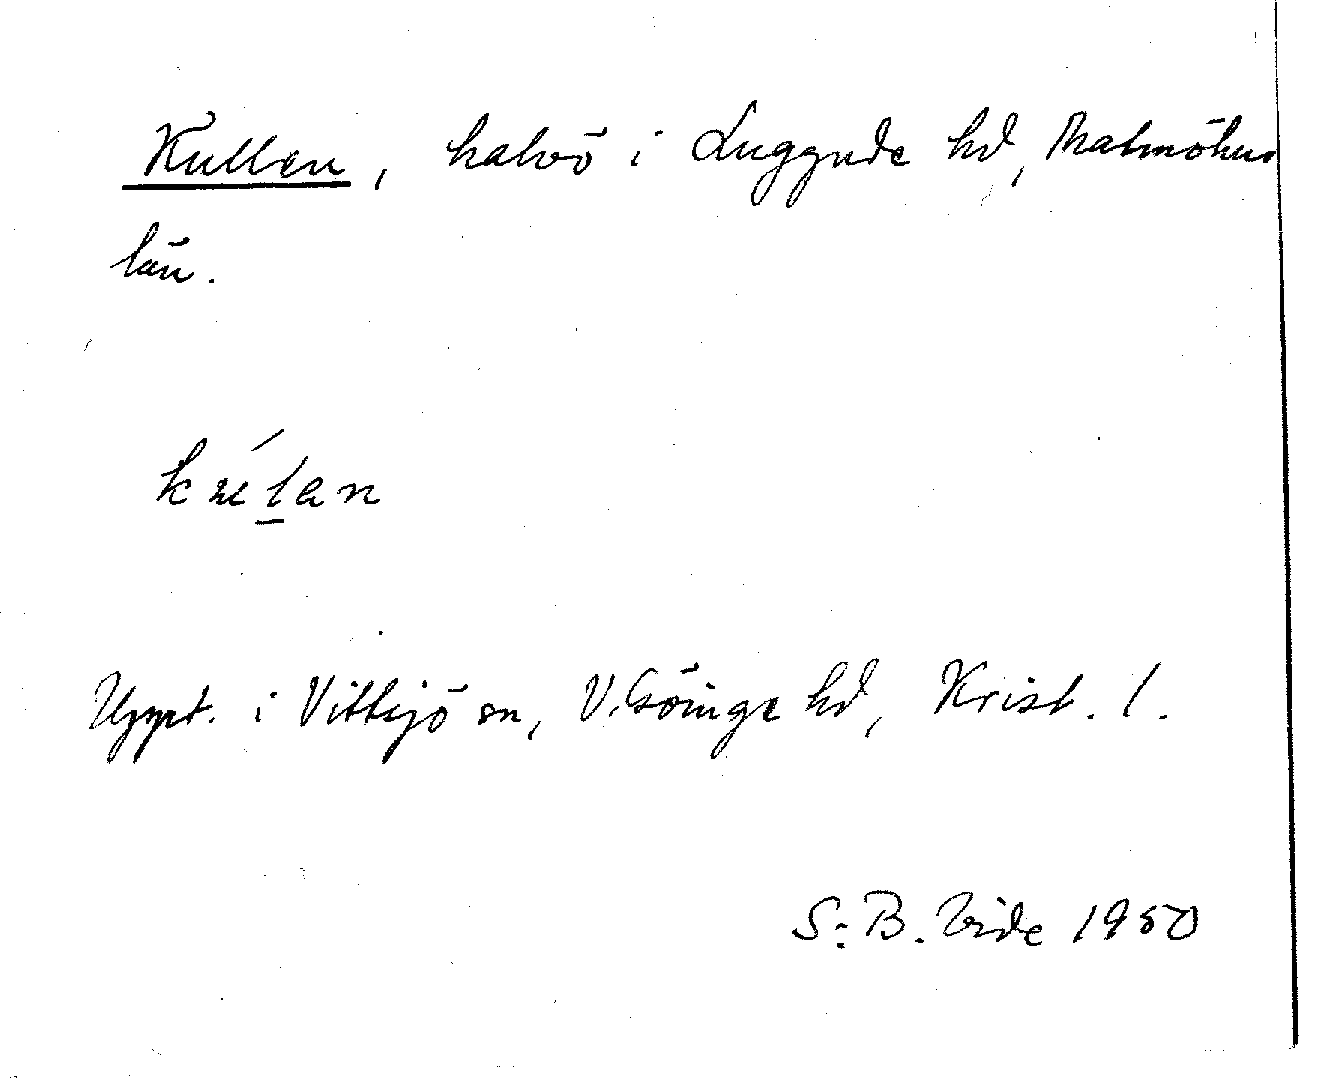 Kullen, halvö i Luggude hd, Malmöhus
län.
Uppt. i Vittsjö sn, V. Göinge hd, Krist. l.
S. B. Vide 1950